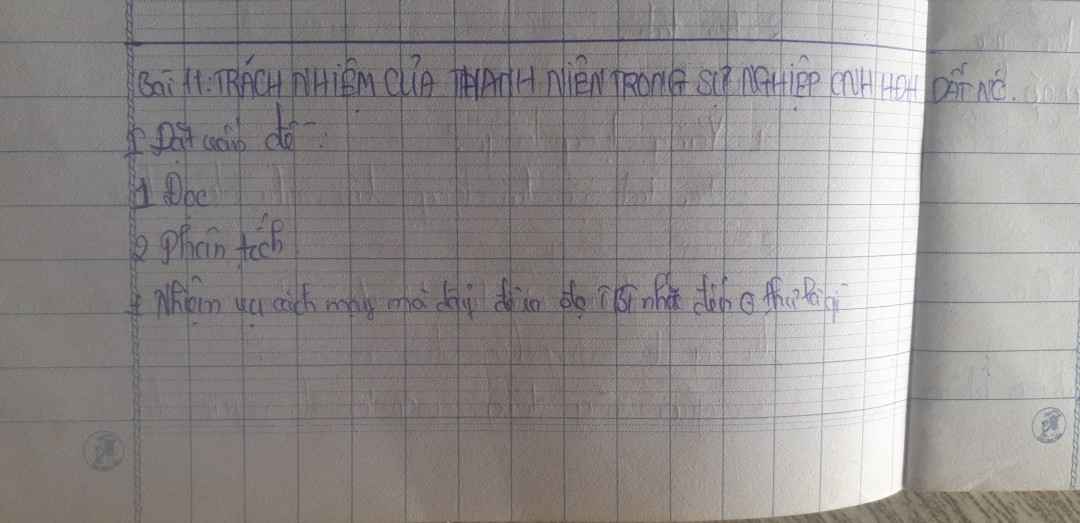 Bài 11: TRÁCH NHIỆM CỦA THANH NIÊN TRONG SỰ NGHIỆP CNH HĐH ĐẤT NC.
I Đặt vấn đề:
1 Đọc
2 Phân tích
+ Nhiệm vụ cách mạng mà đ/c nhắc đến ở thư là gì